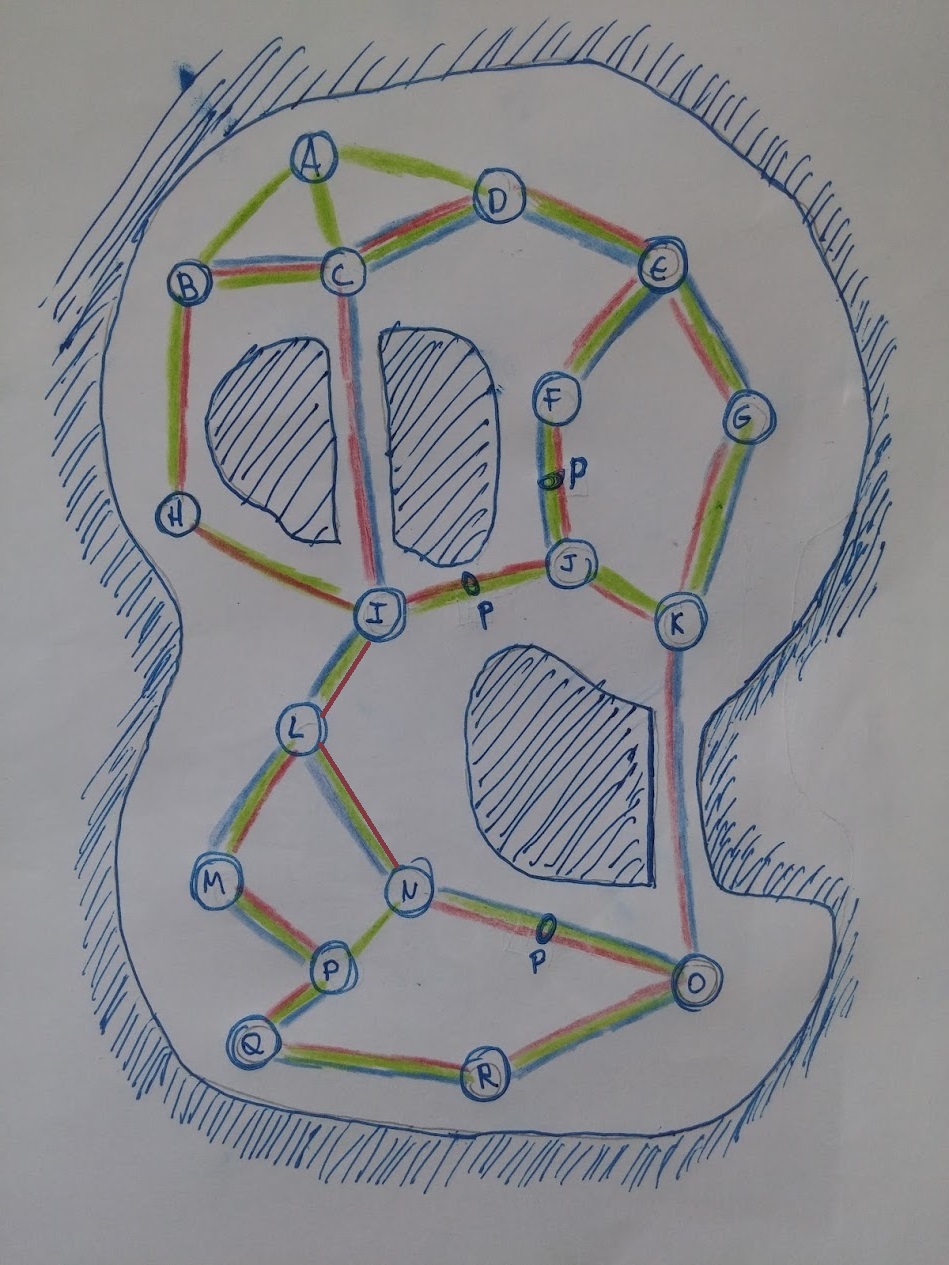 A
D
B
C
E
F
G
P
H
J
I
P
K
L
M
N
P
P
O
Q
R